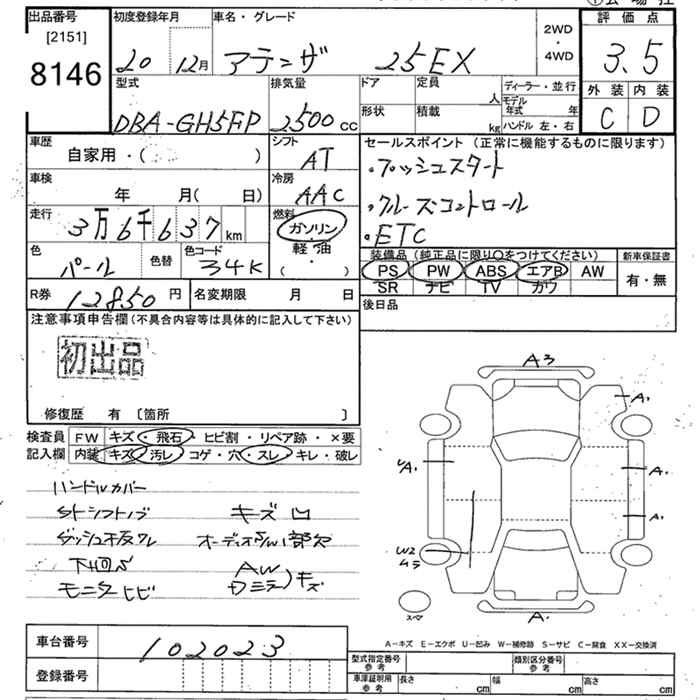 出品番号
[2151]
8146
初度登録年月
20 12月
車名・グレード
アテンザ 25EX
2WD
・
4WD
評価点
3.5
外装 内装
C D
型式
DBA-GH5FP
排気量
2500 cc
ドア
定員
人
形状
積載
kg
ディーラー・並行
モデル年式 年
ハンドル 左・右
車歴
自家用・( )
シフト
AT
車検
年 月( 日)
冷房
AAC
走行
3万6千637 km
燃料
ガソリン
軽・油
色
パール
色替
色コード
34K
R券 12850 円
名変期限 月 日
セールスポイント (正常に機能するものに限ります)
・プッシュスタート
・クルーズコントロール
・ETC
装備品 (純正品に限り○をつけてください)
PS PW ABS エアB AW
SR ナビ TV カワ
新車保証書
有・無
後日品
注意事項申告欄(不具合内容等は具体的に記入して下さい)
初出品
修復歴 有 〔箇所 〕
検査員
記入欄
FW キズ・飛石・ヒビ割・リペア跡・×要
内装 キズ・汚レ・コゲ・穴・スレ・キレ・破レ
ハンドルカバー
シフトノブ キズ凹
下回S
モニタヒビ
AW
キズ
A3
A1
A1
A1
A1
W2
A.
車台番号 102023
登録番号
A-キズ E-エクボ U-凹み W-補修跡 S-サビ C-腐食 XX-交換済
型式指定番号
参考
類別区分番号
参考
車庫証明用
参考
長さ cm
幅 cm
高さ cm